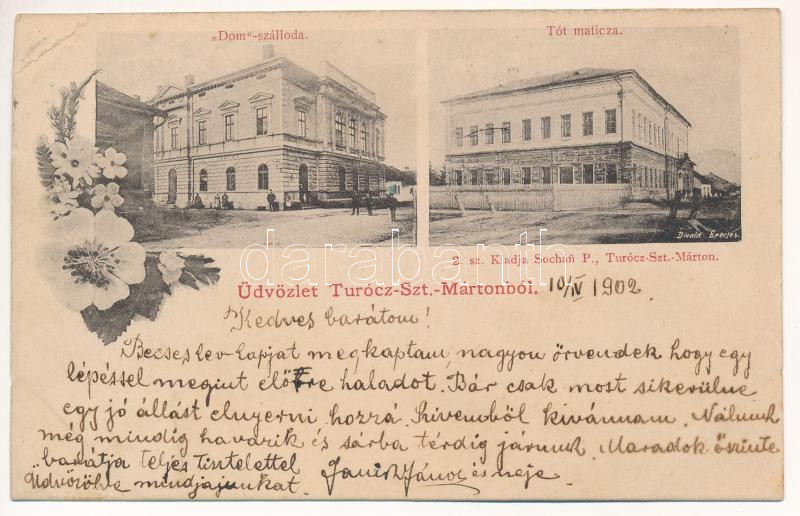 „Dom"-szálloda.
Tót maticza.
Divald Eperjes.
darabanth
2. sz. Kiadja Sochán P., Turócz-Szt.-Márton.
Üdvözlet Turócz-Szt.-Mártonból. 10/IV 1902.
Kedves barátom!
Becses lev-lapjat megkaptam, nagyon örvendek hogy egy
lépéssel megint előre haladot. Bár csak most sikerülne
egy jó állást elnyerni, hozzá szivemből kivánnam. Nálunk
még mindig havazik és sárba térdig járunk. Maradok őszinte
barátja teljes tisztelettel János és neje.
Üdvözölve mindjajunkat.